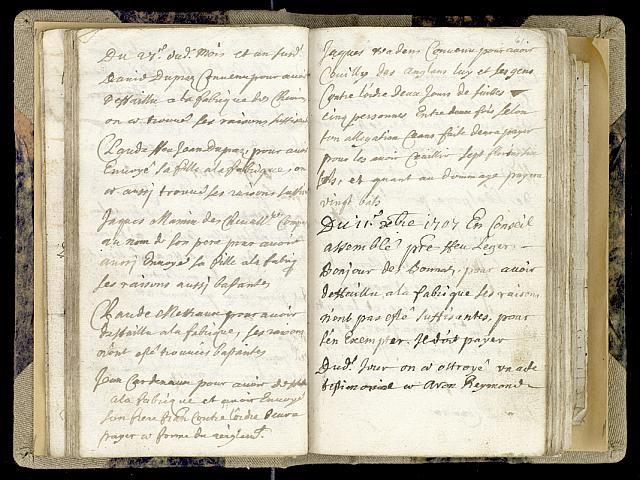 Du 27e dud. Mois et an susd.
David Dupraz Convenu pour avoir
deffailli a la fabrique des
on a trouvé ses raisons suffisantes
Claude ffeu Jean Dupraz, pour avoir
Envoyé sa fille a la fabrique, on
a aussi trouvé ses raisons suffis
Jaques Mamin des
au nom de son pere pour avoir
aussi Envoyé sa fille a la fabriq
ses raisons aussi bastantes
Claude Metraux pour avoir
deffailli a la fabrique, ses raisons
n'ont esté trouvees bastantes
Jean Cardenaux pour avoir
a la fabrique et avoir Envoyé
son frere Contre l'ordre devra
payer a forme du reiglemt.
Jaques Convenu pour avoir
Coeilly des luy et ses gens
Contre l'ordre deux Jours de suittes
cinq personnes Entre deux fois selon
son allegation devra payer
pour les avoir Coeillir sept florins
sols, et quant au dommage payera
vingt bats
Du 11e Xbre 1707 En Conseil
assemblé pre ffeu Leger
Bonjour des Bonnaz, pour avoir
deffailli a la fabrique ses raisons
n'ont pas esté suffisantes, pour
l'en Exempter. Il doit payer
Dud. Jour on a ottroyé un acte
testimonial a Aron Reymond